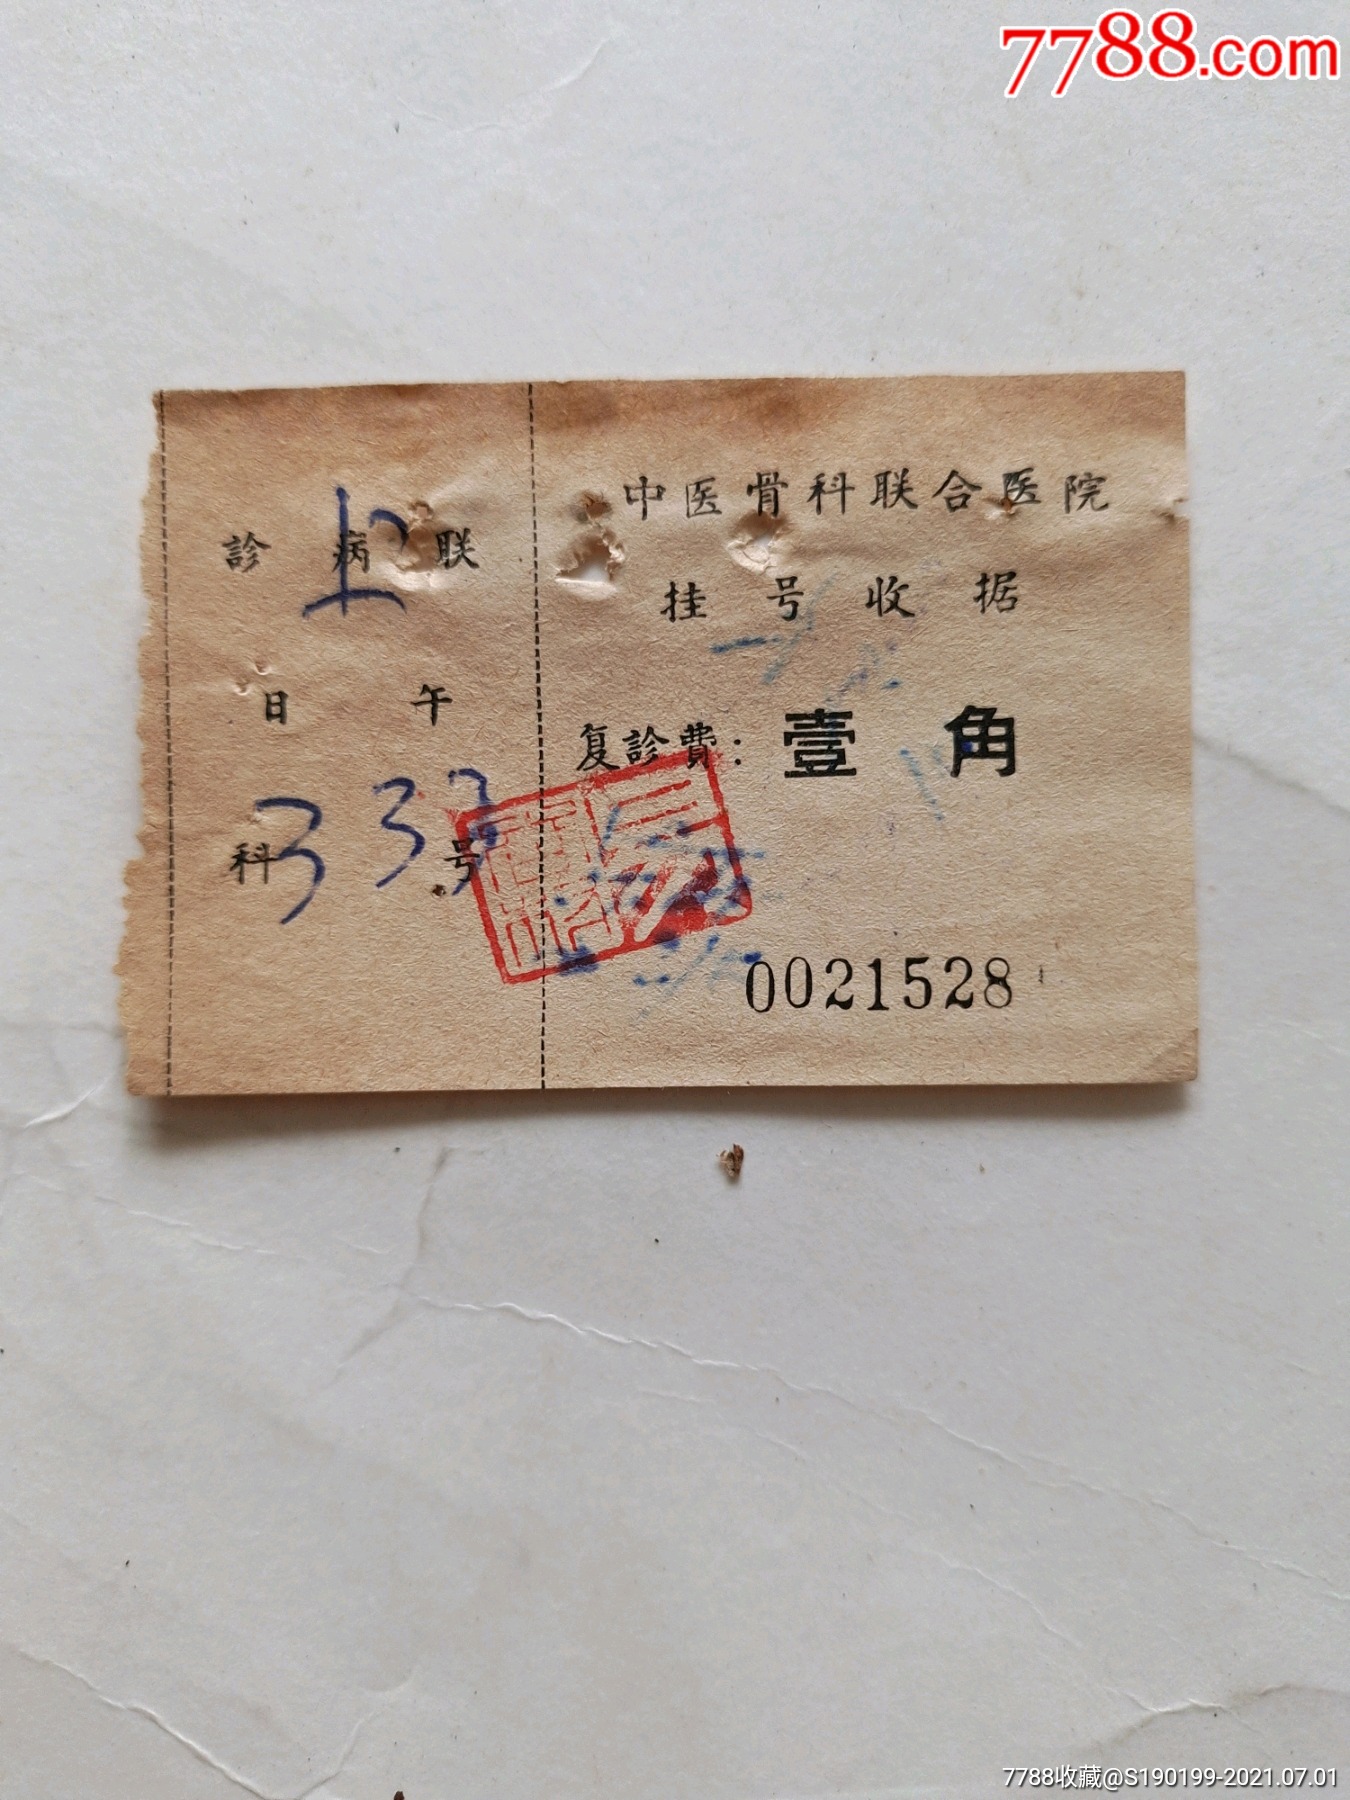 7788.com
中医骨科联合医院
挂号收据
复診費：壹角
0021528
診病联
上
日 午
科 333 号
7788收藏@S190199-2021.07.01